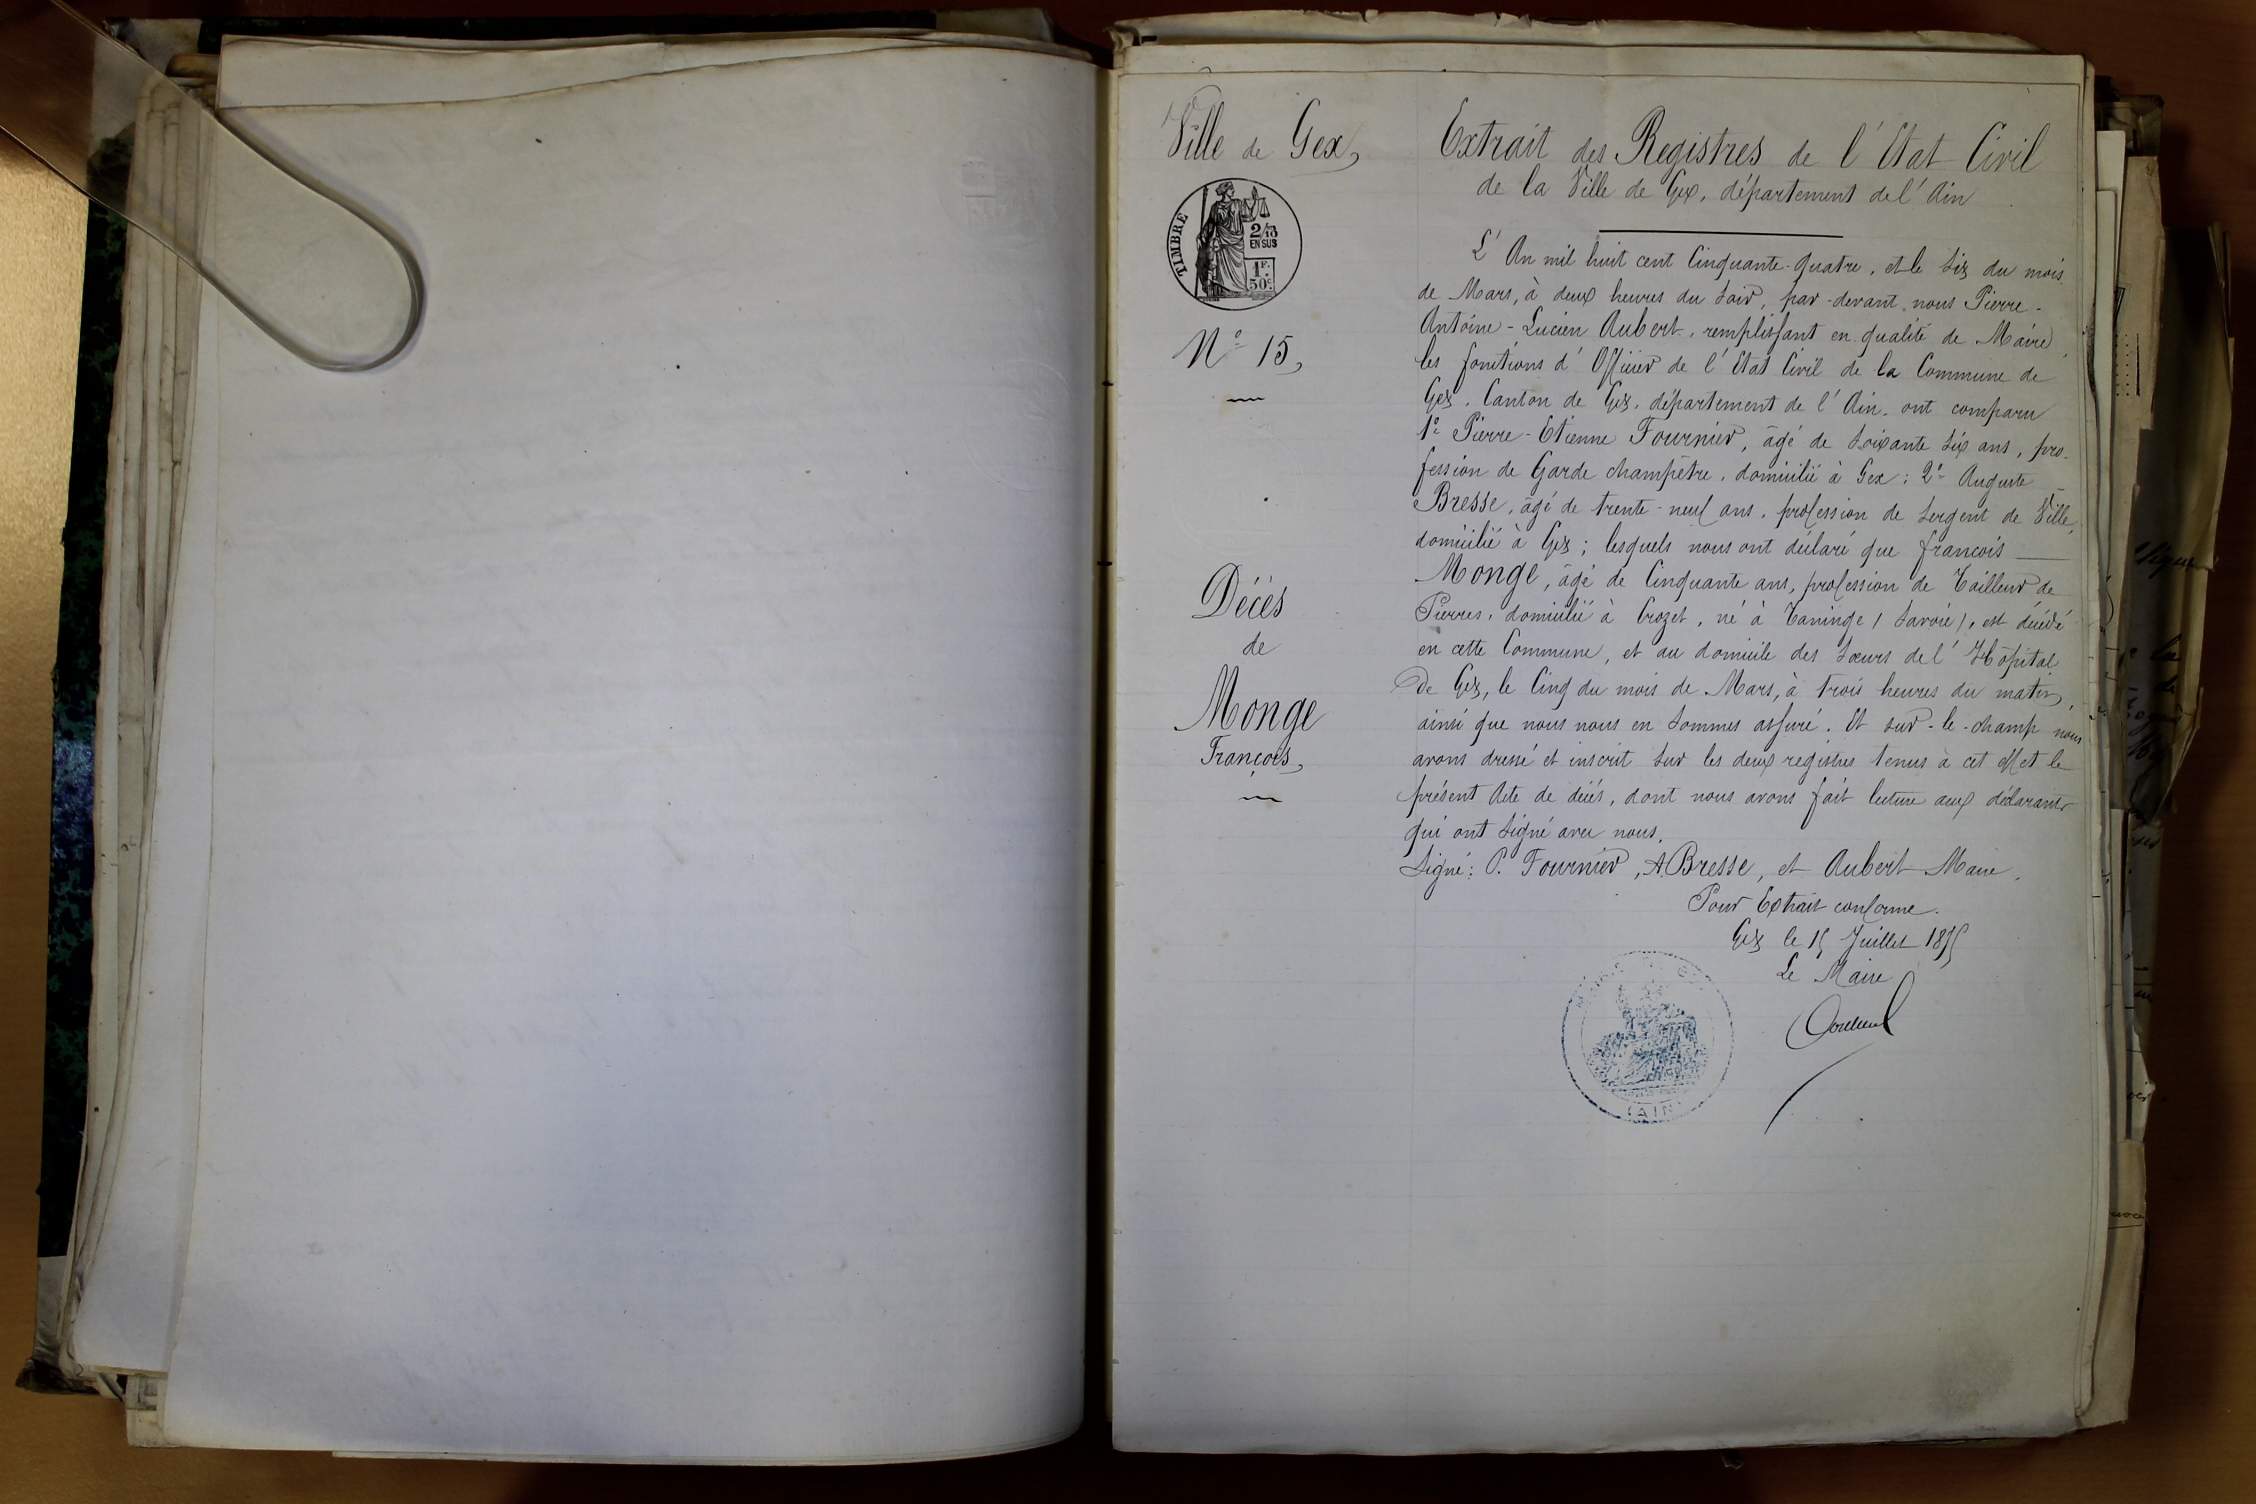 Ville de Gex,
TIMBRE
2/10
EN SUS
1F.
50c
N° 15,
Décès
de
Monge
François,
Extrait des Registres de l'Etat Civil
de la Ville de Gex, département de l'Ain
L'An mil huit cent Cinquante-Quatre, et le Six du mois
de Mars, à deux heures du Soir, par-devant nous Pierre-
Antoine-Lucien Aubert, remplissant en qualité de Maire
les fonctions d'Officier de l'Etat Civil de la Commune de
Gex, Canton de Gex, département de l'Ain, ont comparu
1° Pierre-Etienne Fournier, âgé de Soixante Six ans, pro-
fession de Garde champêtre, domicilié à Gex; 2° Auguste
Bresse, âgé de trente-neuf ans, profession de Sergent de Ville,
domicilié à Gex; lesquels nous ont déclaré que François
Monge, âgé de Cinquante ans, profession de Tailleur de
Pierres, domicilié à Crozet, né à Taninge (Savoie), est décédé
en cette Commune, et au domicile des Sœurs de l'Hôpital
De Gex, le Cinq du mois de Mars, à trois heures du matin,
ainsi que nous nous en Sommes assuré. Et sur-le-champ nous
avons dressé et inscrit Sur les deux registres tenus à cet effet le
présent Acte de décès, dont nous avons fait lecture aux déclarants
qui ont Signé avec nous.
Signé: P. Fournier, A. Bresse, et Aubert Maire.
Pour Extrait conforme.
Gex le 15 Juillet 1875
Le Maire
(AIN)